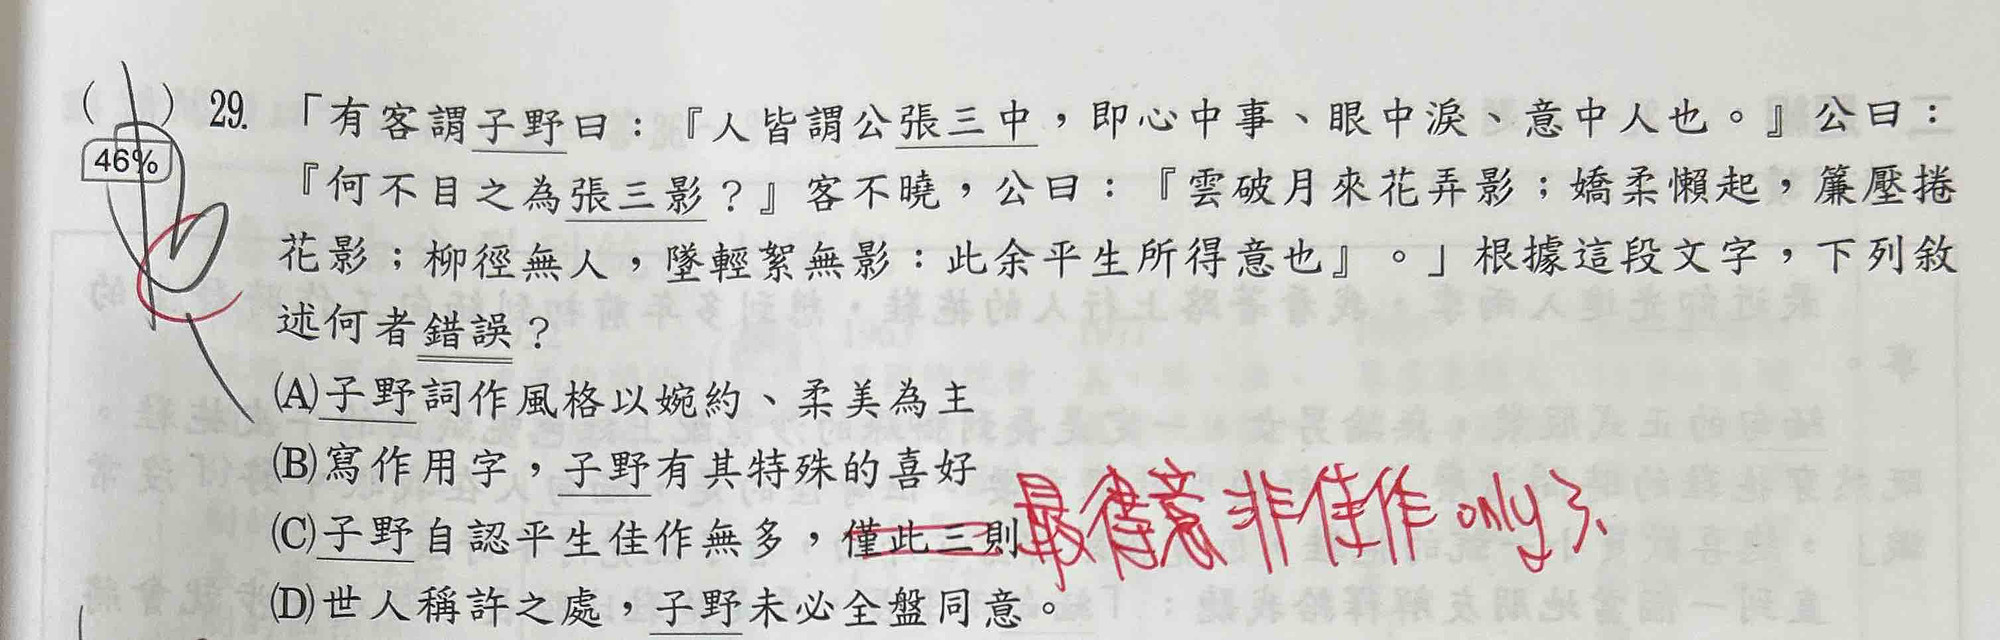 ( ) 29. 「有客謂子野曰：『人皆謂公張三中，即心中事、眼中淚、意中人也。』公曰：
46%
『何不目之為張三影？』客不曉，公曰：『雲破月來花弄影；嬌柔懶起，簾壓捲
花影；柳徑無人，墜輕絮無影：此余平生所得意也』。」根據這段文字，下列敘
述何者錯誤？
(A)子野詞作風格以婉約、柔美為主
(B)寫作用字，子野有其特殊的喜好
(C)子野自認平生佳作無多，僅此三則
最得意非佳作only 3
(D)世人稱許之處，子野未必全盤同意。